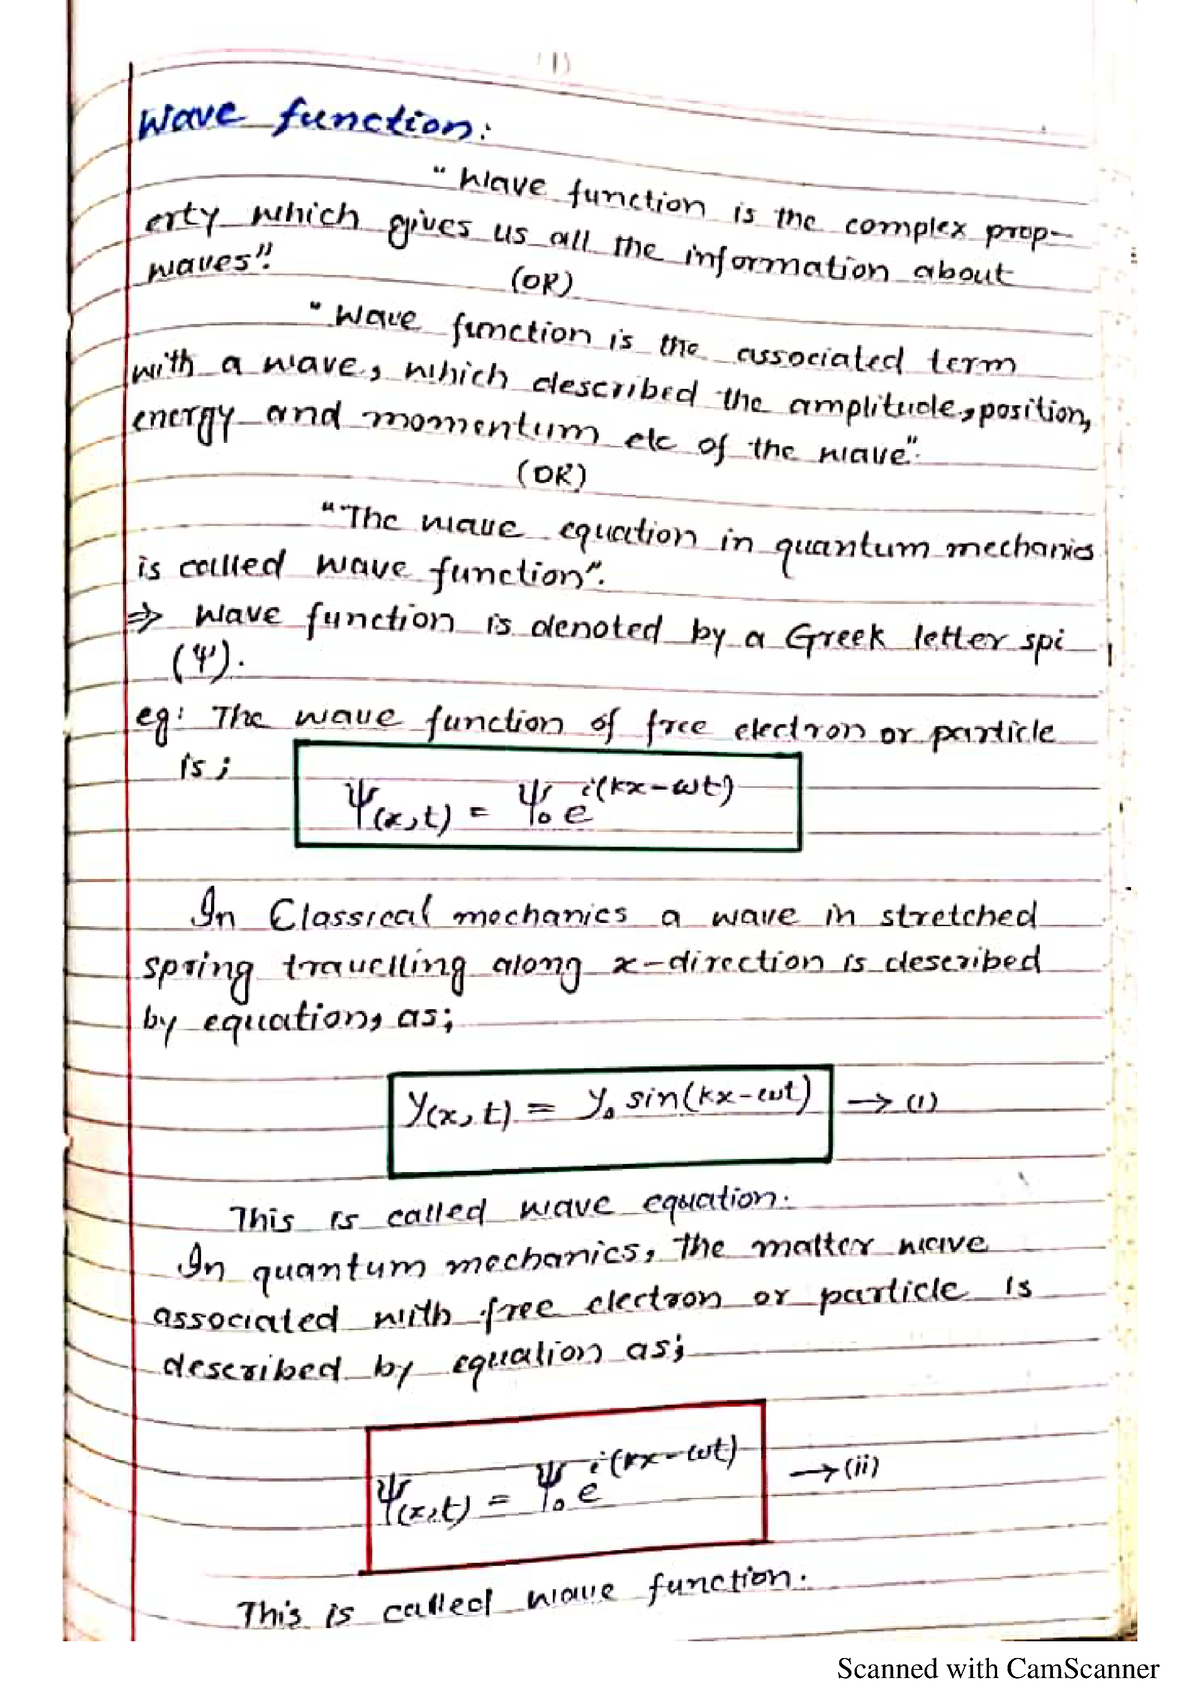 (1)
Wave function:
"Wave function is the complex prop-
erty which gives us all the information about
waves".
(OR)
"Wave function is the associated term
with a wave, which described the amplitude, position,
energy and momentum etc of the wave".
(OR)
"The wave equation in quantum mechanics
is called wave function".
⇒ Wave function is denoted by a Greek letter spi
(Ψ).
eg: The wave function of free electron or particle
is;
Ψ(x,t) = Ψ₀ e^i(kx-ωt)
In Classical mechanics a wave in stretched
spring travelling along x-direction is described
by equation, as;
Y(x,t) = Y₀ sin(kx-ωt) → (1)
This is called wave equation.
In quantum mechanics, the matter wave
associated with free electron or particle is
described by equation as;
Ψ(x,t) = Ψ₀ e^i(kx-ωt) → (ii)
This is called wave function.
Scanned with CamScanner